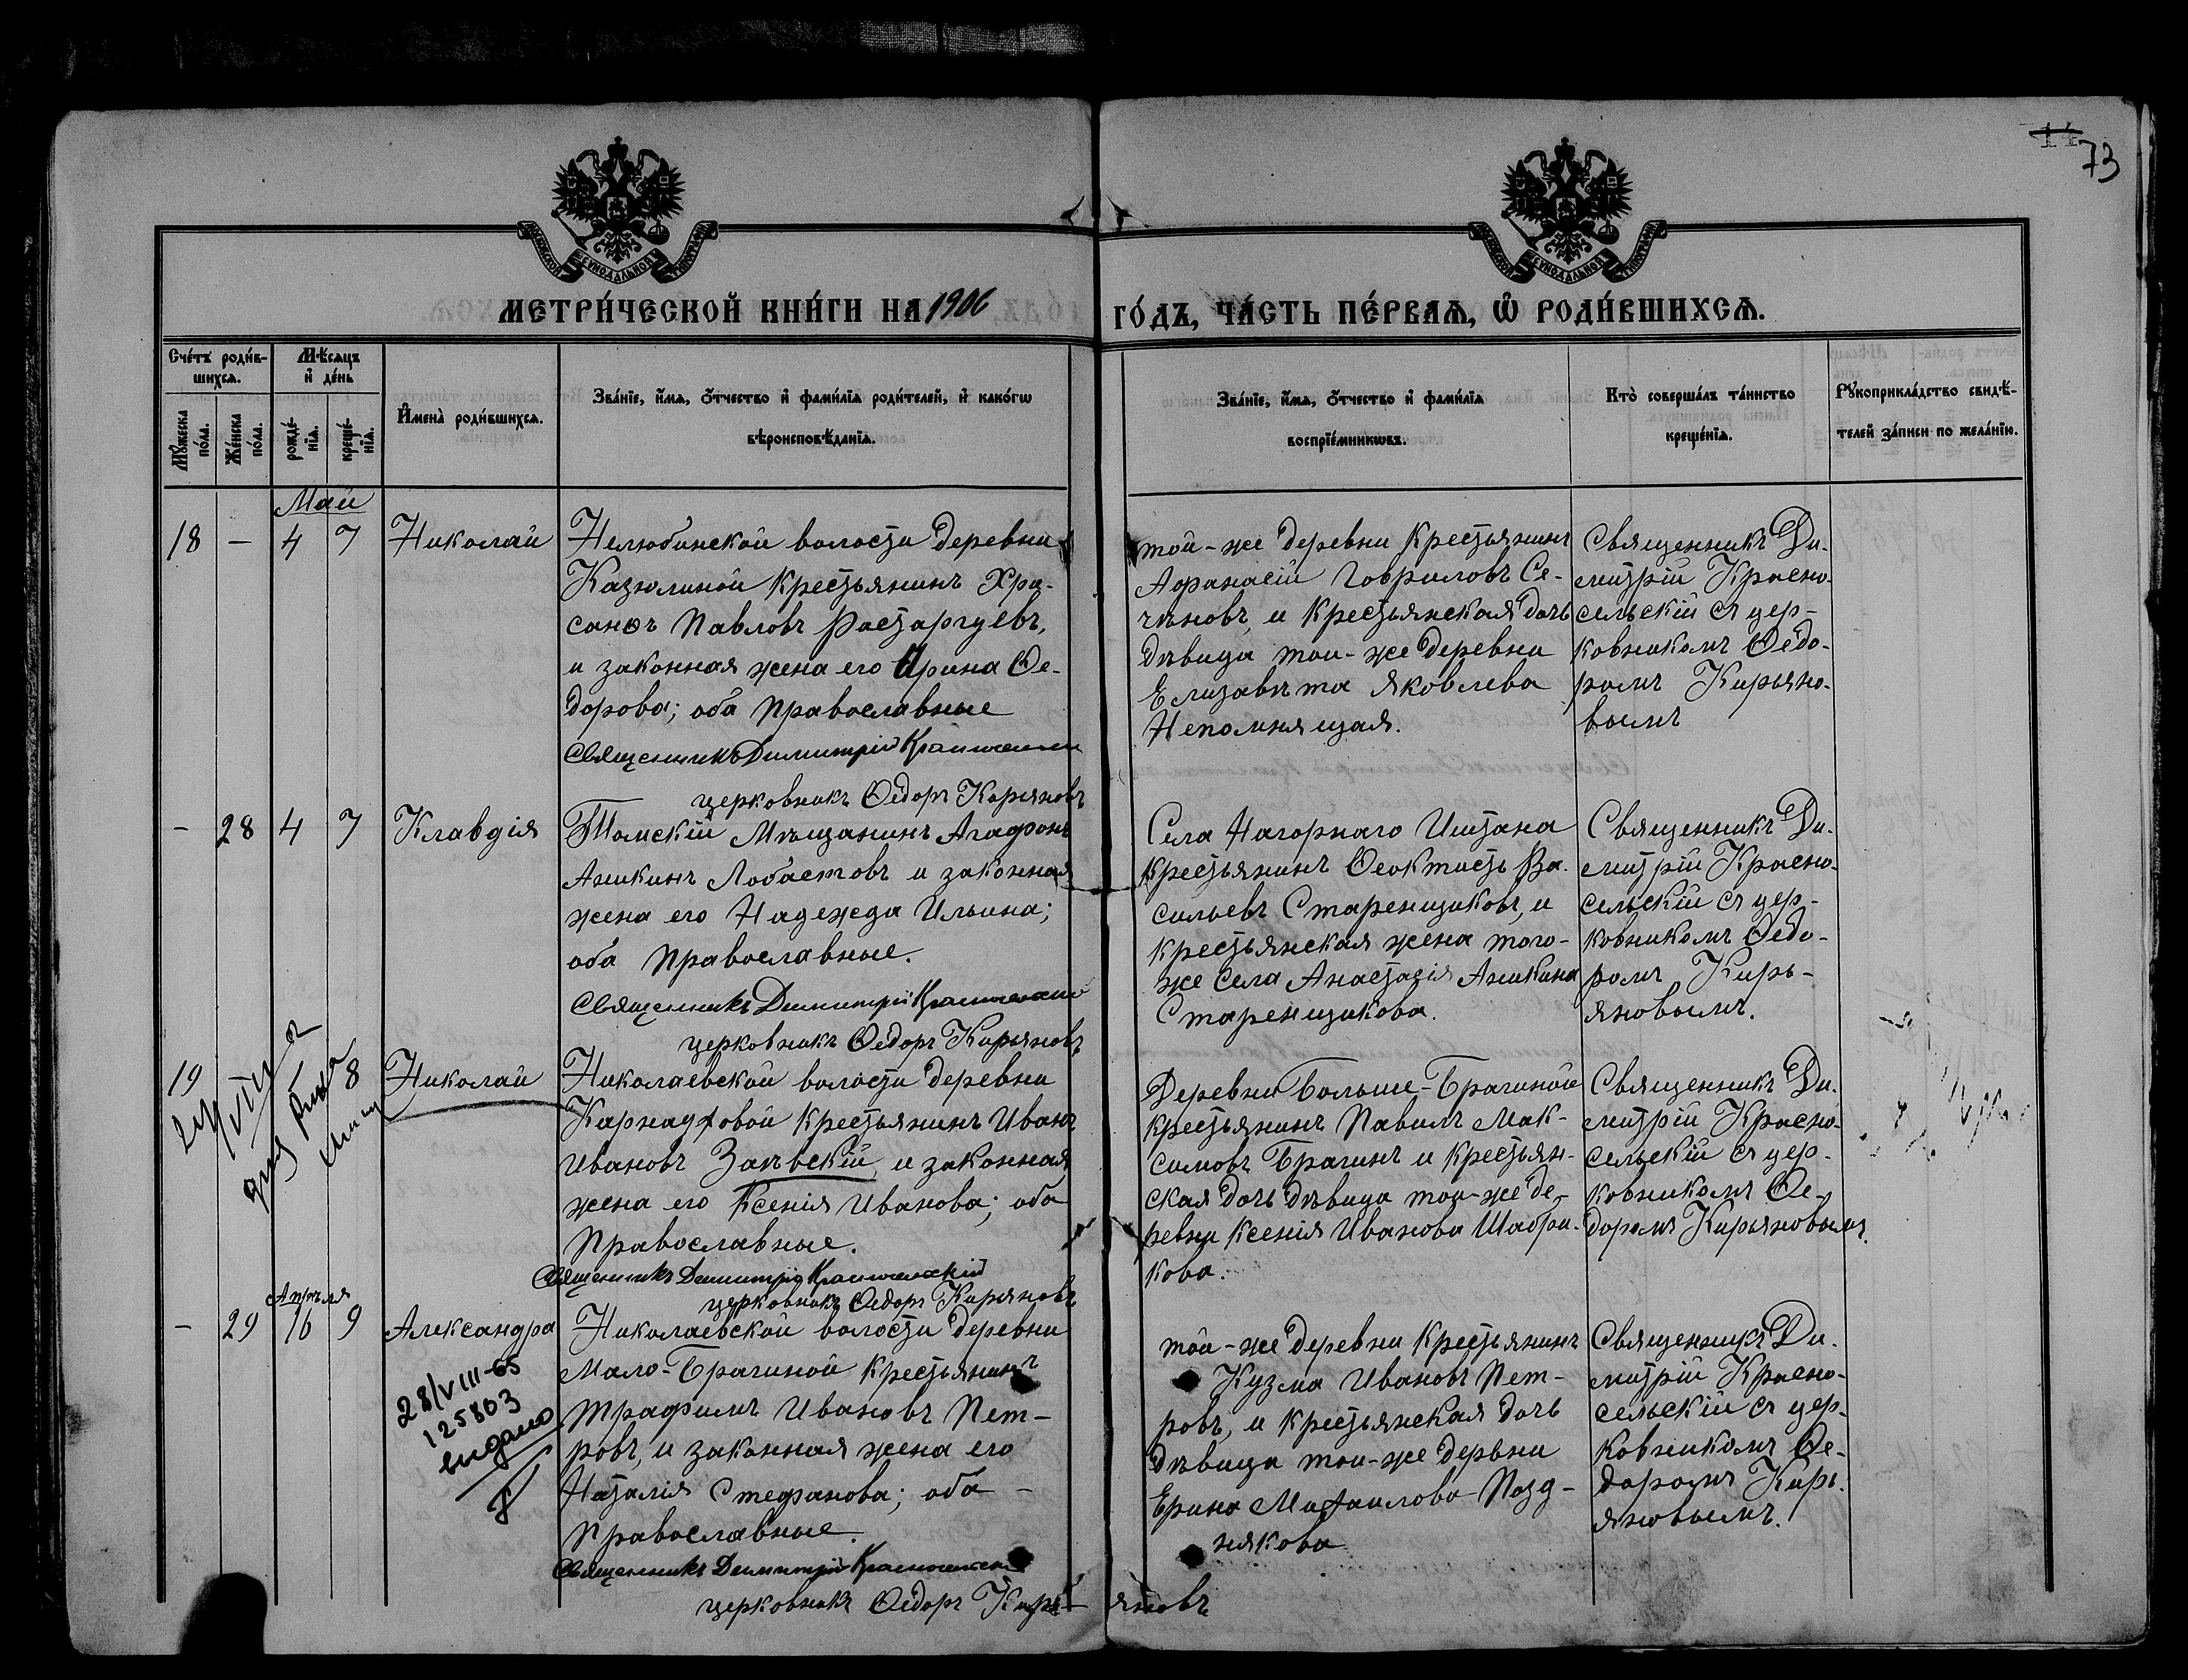 14
73
МЕТРИ́ЧЕСКОЙ КНИ́ГИ НА 1906
ГО́ДЪ, ЧА́СТЬ ПЕ́РВАѦ, Ѡ҆ РОДИ́ВШИХСѦ.
Сче́тъ роди́в-
шихсѧ.
Мѣ́сѧцъ
и҆ де́нь
Мꙋ́жеска
по́ла.
Же́нска
по́ла.
рожде́-
нїѧ.
креще́-
нїѧ.
И҆мена̀ роди́вшихсѧ.
Зва́нїе, и҆́мѧ, ѻ҆́тчество и҆ фами́лїѧ роди́телей, и҆ како́гѡ
вѣроисповѣ́данїѧ.
Зва́нїе, и҆́мѧ, ѻ҆́тчество и҆ фами́лїѧ
воспрїе́мникѡвъ.
Кто̀ соверша́лъ та́инство
креще́нїѧ.
Рꙋкоприкла́дство свидѣ́-
телей за́писи по жела́нїю.
Май
18 — 4 7 Николай
Нелюбинской волости деревни
Казюлиной крестьянинъ Хри-
санѳъ Павловъ Расторгуевъ,
и законная жена его Ирина Ѳе-
дорова; оба православные
Священникъ Димитрій Красносельскій
церковникъ Ѳедоръ Кирьяновъ
той-же деревни крестьянинъ
Афанасій Гавриловъ Се-
чѣновъ, и крестьянская дочь
дѣвица той-же деревни
Елизавѣта Яковлева
Непомнящая.
Священникъ Ди-
митрій Красно-
сельскій съ цер-
ковникомъ Ѳедо-
ромъ Кирьяно-
вымъ
— 28 4 7 Клавдія
Томскій Мѣщанинъ Агафонъ
Аникинъ Лобастовъ и законная
жена его Надежда Ильина;
оба православные.
Священникъ Димитрій Красносельскій
церковникъ Ѳедоръ Кирьяновъ
Села Нагорнаго Иштана
крестьянинъ Ѳеоктистъ Ва-
сильевъ Старенщиковъ, и
крестьянская жена того-
же села Анастасія Аникина
Старенщикова.
Священникъ Ди-
митрій Красно-
сельскій съ цер-
ковникомъ Ѳедо-
ромъ Кирь-
яновымъ.
19 8 Николай
Николаевской волости деревни
Карнауховой крестьянинъ Иванъ
Ивановъ Заѣвскій, и законная
жена его Ксенія Иванова; оба
православные.
Священникъ Димитрій Красносельскій
церковникъ Ѳедоръ Кирьяновъ
Деревни Больше-Брагиной
крестьянинъ Павилъ Мак-
симовъ Брагинъ и крестьян-
ская дочь дѣвица той-же де-
ревни Ксенія Иванова Шабри-
кова.
Священникъ Ди-
митрій Красно-
сельскій съ цер-
ковникомъ Ѳе-
доромъ Кирьяновымъ.
Апрѣля
— 29 16 9 Александра
28/VIII-65
125803
выдано
Николаевской волости деревни
Мало-Брагиной крестьянинъ
Трафимъ Ивановъ Пет-
ровъ, и законная жена его
Наталія Стефанова; оба -
православные.
Священникъ Димитрій Красносельскій
церковникъ Ѳедоръ Кирь-яновъ
той-же деревни крестьянинъ
Кузма Ивановъ Пет-
ровъ, и крестьянская дочь
дѣвица той-же дерьвни
Ерина Михаилова Позд-
някова
Священникъ Ди-
митрій Красно-
сельскій съ цер-
ковникомъ Ѳе-
доромъ Кирь-
яновымъ.